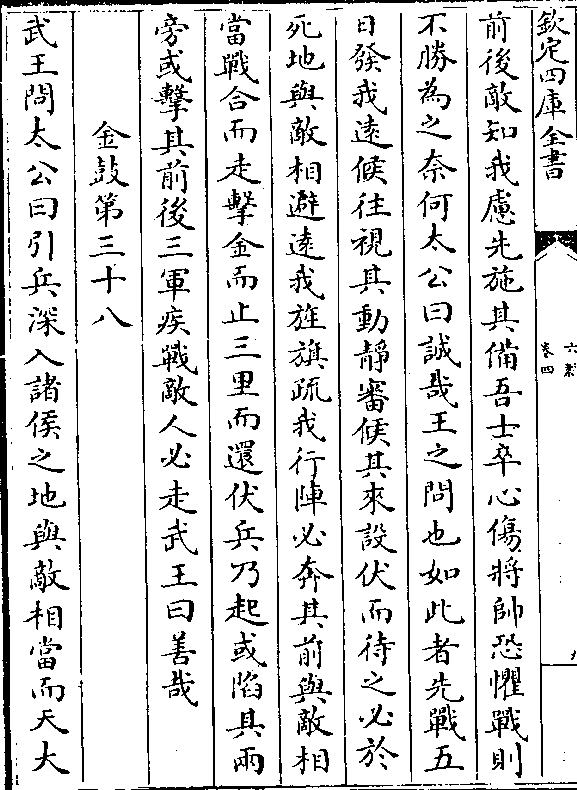 欽定四庫全書
六韜
卷四
前後敵知我慮先施其備吾士卒心傷將帥恐懼戰則
不勝為之奈何太公曰誠哉王之問也如此者先戰五
日發我遠候往視其動靜審候其來設伏而待之必於
死地與敵相避遠我旌旗疏我行陣必奔其前與敵相
當戰合而走擊金而止三里而還伏兵乃起或陷其兩
旁或擊其前後三軍疾戰敵人必走武王曰善哉
金鼓第三十八
武王問太公曰引兵深入諸侯之地與敵相當而天大